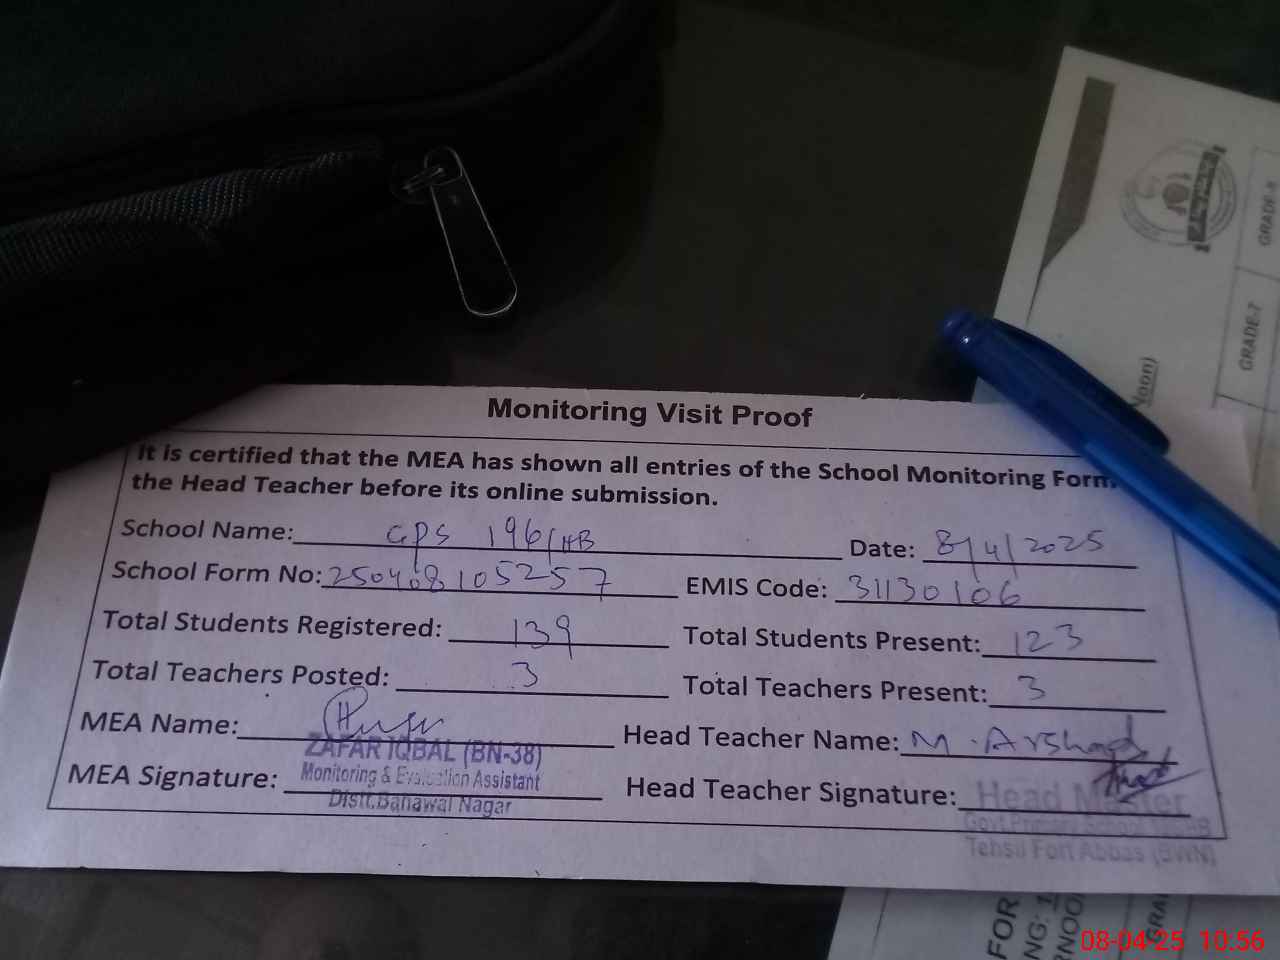 Monitoring Visit Proof
It is certified that the MEA has shown all entries of the School Monitoring Form
the Head Teacher before its online submission.
School Name: GPS 196/HB Date: 8/4/2025
School Form No: 250408105257 EMIS Code: 31130106
Total Students Registered: 139 Total Students Present: 123
Total Teachers Posted: 3 Total Teachers Present: 3
MEA Name: Head Teacher Name: M. Arshad
ZAFAR IQBAL (BN-38)
Monitoring & Evaluation Assistant
Distt.Bahawal Nagar
MEA Signature: Head Teacher Signature:
Head Master
Govt. Primary School
Tehsil Fort Abbas (BWN)
GRADE-8
GRADE-7
Noon)
FOR
NG: 1
RNOO
GRA
08-04-25 10:56